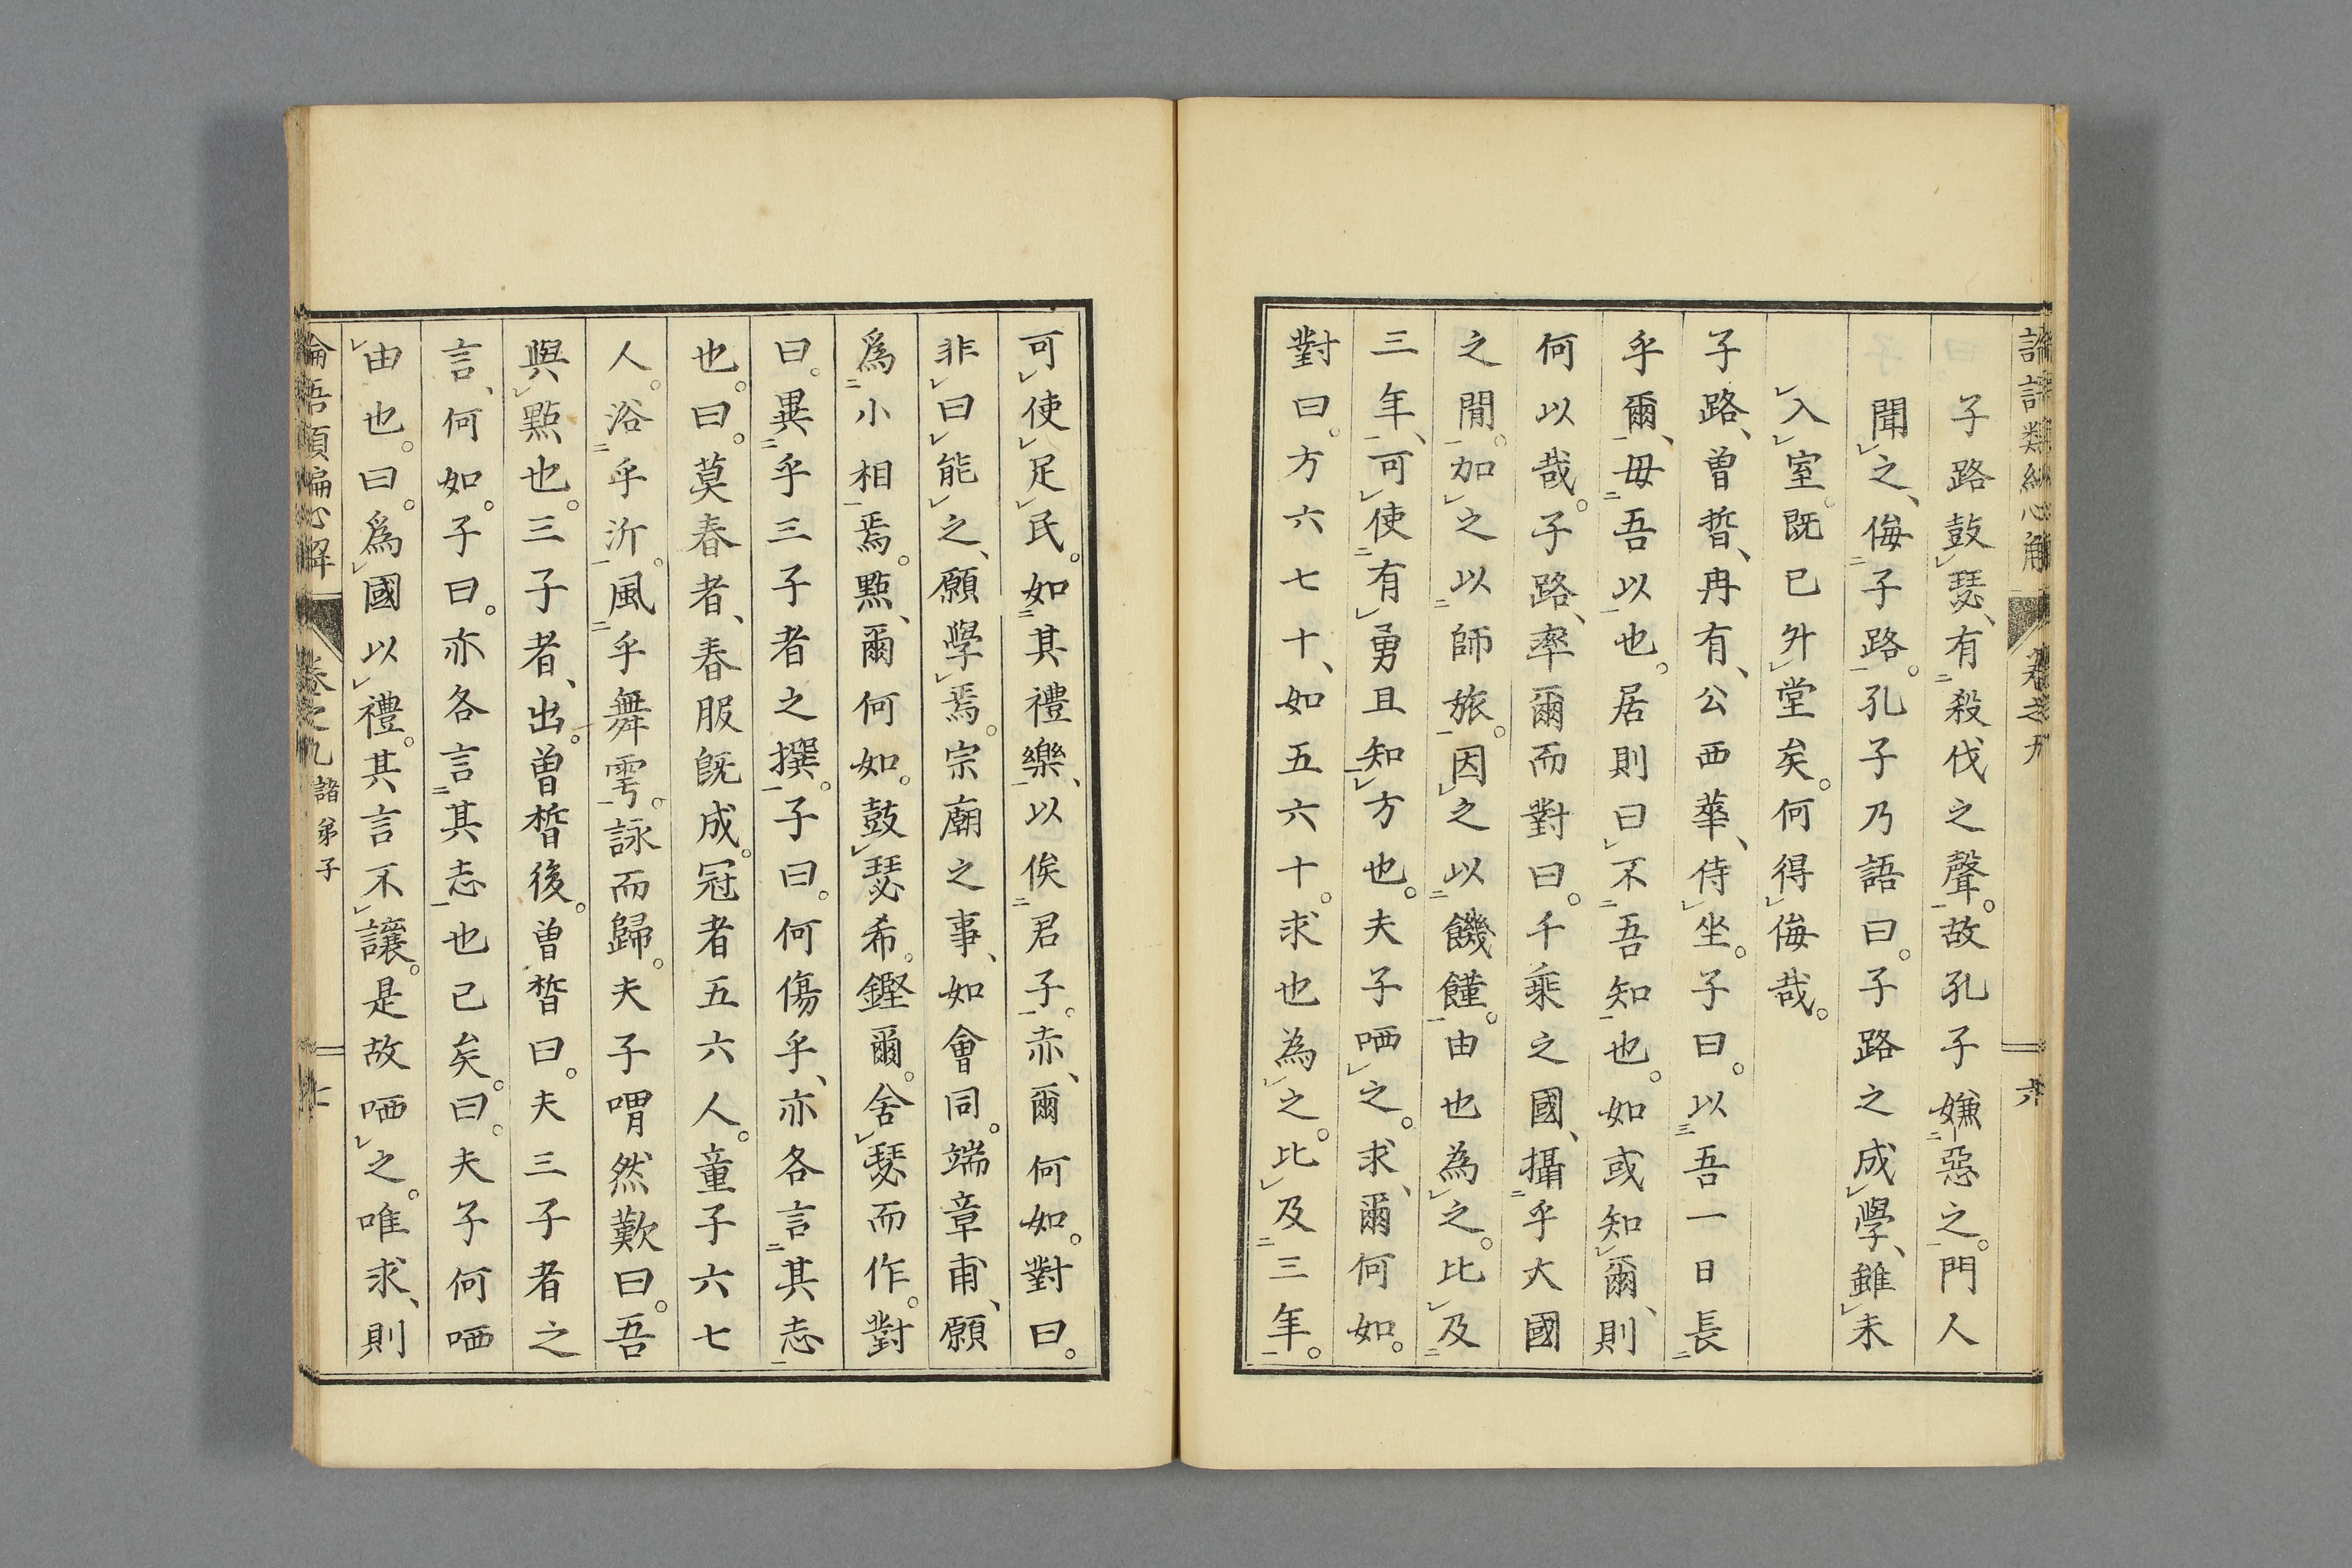 子路鼓瑟、有殺伐之聲。故孔子嫌惡之。門人
聞之、侮子路。孔子乃語曰。子路之成學、雖未
入室。既已升堂矣。何得侮哉。
子路、曾晳、冉有、公西華、侍坐。子曰。以吾一日長
乎爾、毋吾以也。居則曰不吾知也。如或知爾、則
何以哉。子路、率爾而對曰。千乘之國、攝乎大國
之閒。加之以師旅。因之以饑饉。由也為之。比及
三年、可使有勇且知方也。夫子哂之。求、爾何如。
對曰。方六七十、如五六十。求也為之。比及三年。
可使足民。如其禮樂、以俟君子。赤、爾何如。對曰。
非曰能之、願學焉。宗廟之事、如會同。端章甫、願
爲小相焉。點、爾何如。鼓瑟希。鏗爾。舍瑟而作。對
曰。異乎三子者之撰。子曰。何傷乎、亦各言其志
也。曰。莫春者、春服既成。冠者五六人。童子六七
人。浴乎沂。風乎舞雩。詠而歸。夫子喟然歎曰。吾
與點也。三子者、出。曾晳後。曾晳曰。夫三子者之
言、何如。子曰。亦各言其志也已矣。曰。夫子何哂
由也。曰。爲國以禮。其言不讓。是故哂之。唯求、則
卷之九 諸弟子